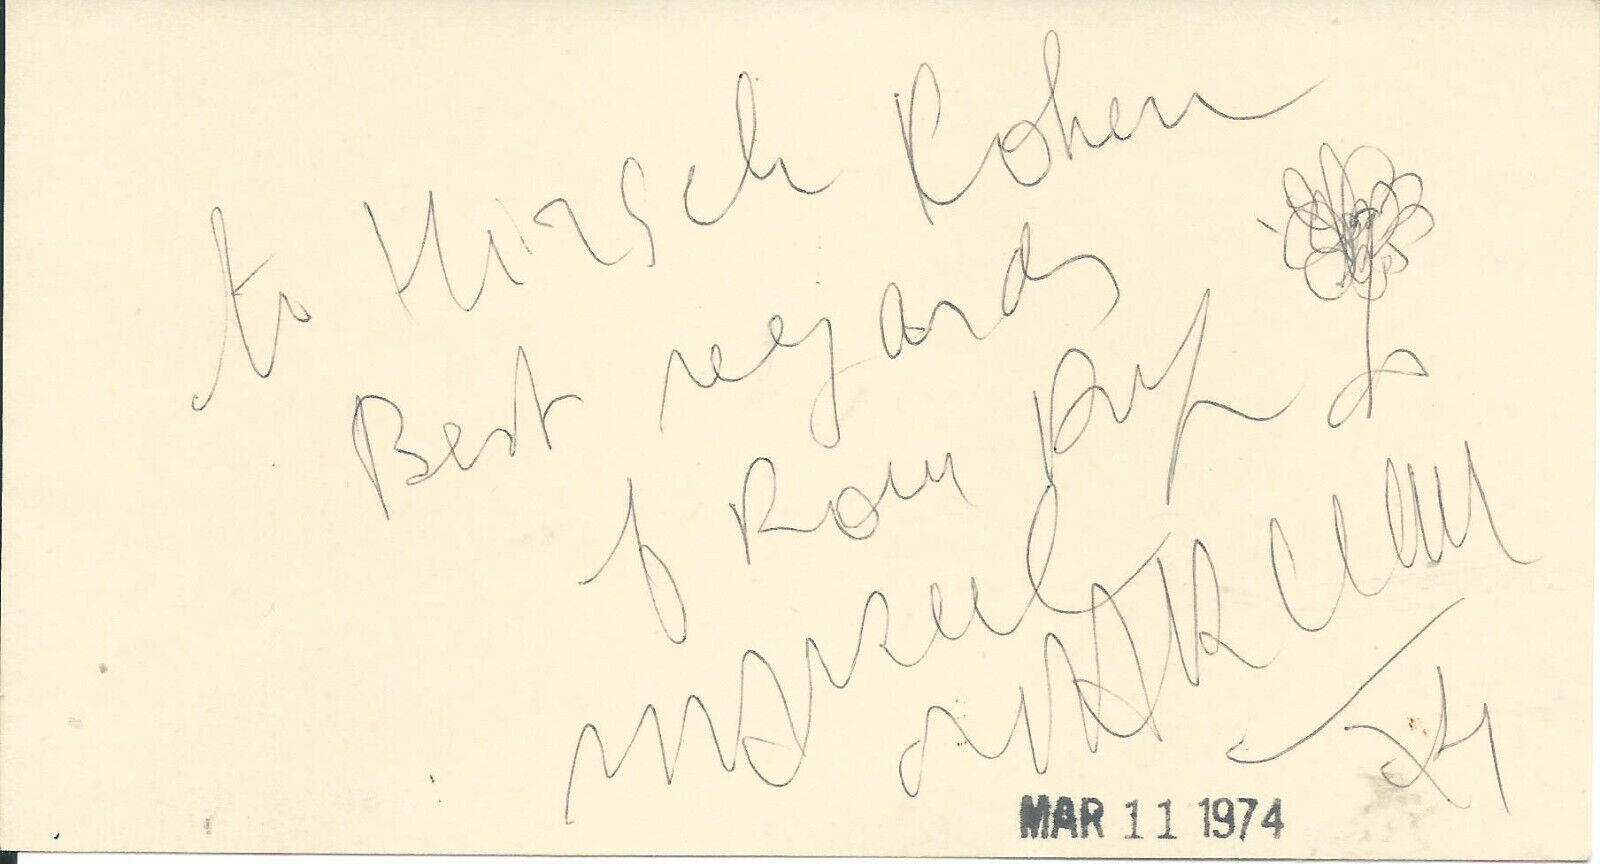 to Hirsch Kohen
Best regards
f Rom
Marcel
Marceau
74
MAR 11 1974